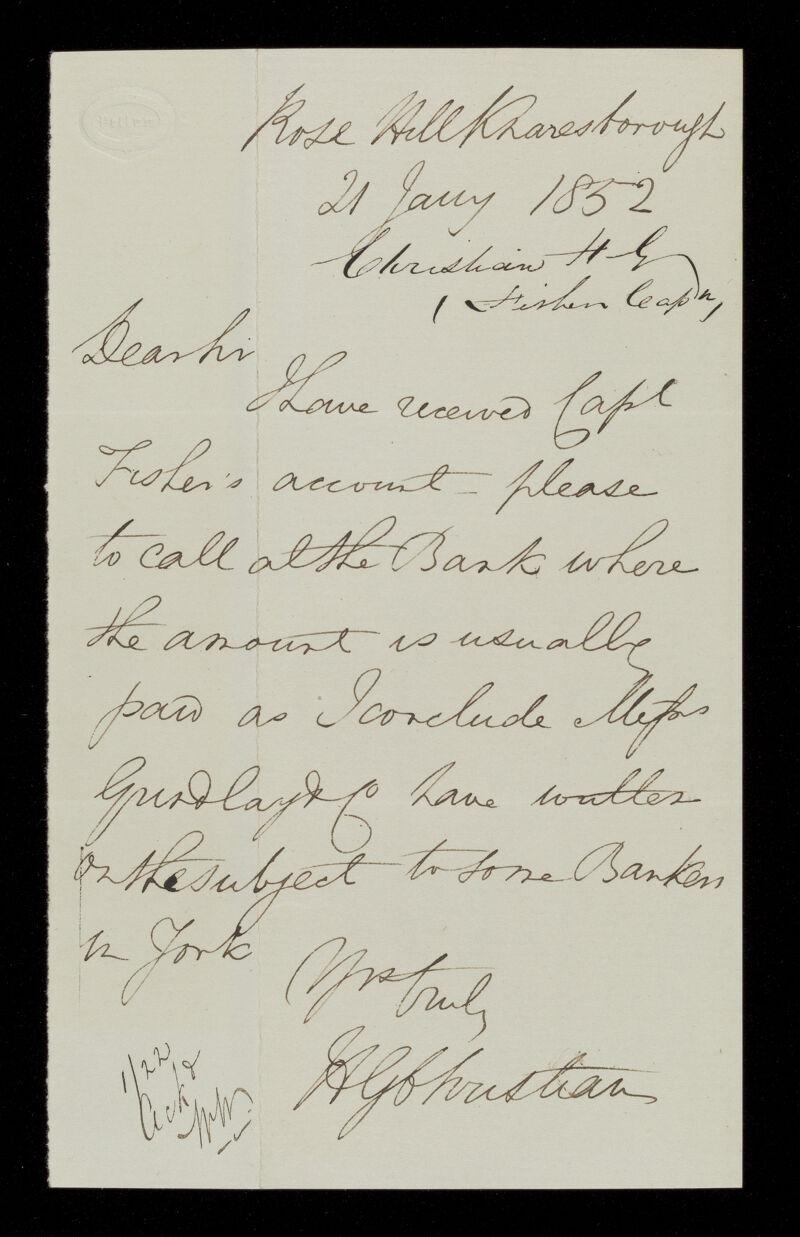 Rose Hill Knaresborough
21 Jany 1852
Christian H G
(Fisher Capn)
Dear Sir
I have received Capt
Fisher's account - please
to call at the Bank where
the amount is usually
paid as I conclude Messrs
Grindlay & Co have written
on the subject to some Bankers
in York
Yrs truly
H G Christian
1/22
Ackd